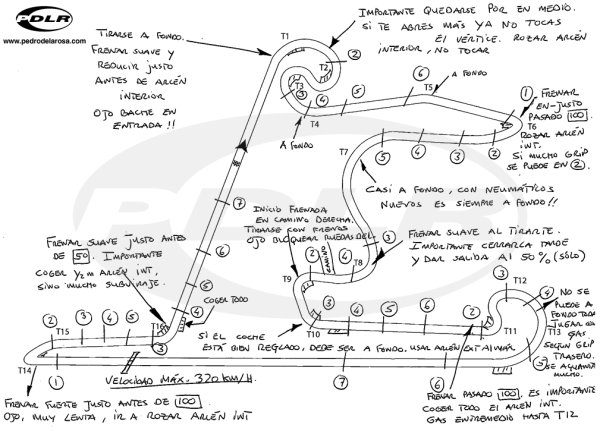 PDLR
www.pedrodelarosa.com
TIRARSE A FONDO.
FRENAR SUAVE Y
REDUCIR JUSTO
ANTES DE ARCÉN
INTERIOR
OJO BACHE EN
ENTRADA!!
IMPORTANTE QUEDARSE POR EN MEDIO.
SI TE ABRES MÁS YA NO TOCAS
EL VÉRTICE. ROZAR ARCÉN
INTERIOR, NO TOCAR
T1
T2
2
T3
3
4
T4
A FONDO
5
6
T5
A FONDO
1
FRENAR
EN-JUSTO
PASADO 100
T6
ROZAR ARCÉN
INT.
SI MUCHO GRIP
SE PUEDE EN 2.
5
4
3
2
T7
CASI A FONDO, CON NEUMÁTICOS
NUEVOS ES SIEMPRE A FONDO!!
7
6
5
4
COGER TODO
INICIO FRENADA
EN CAMINO DERECHA.
TIRARSE CON FRENOS
OJO BLOQUEAR RUEDAS DEL.
CAMINO
FRENAR SUAVE AL TIRARTE.
IMPORTANTE CERRARLA TARDE
Y DAR SALIDA AL 50% (SÓLO)
3
4
T8
2
T9
FRENAR SUAVE JUSTO ANTES
DE 50. IMPORTANTE
COGER Y2M ARCÉN INT,
SINO MUCHO SUBVIRAJE.
2
T15
3
4
5
T16
3
T14
1
VELOCIDAD MÁX. 320 KM/H.
FRENAR FUERTE JUSTO ANTES DE 100
OJO, MUY LENTA, IR A ROZAR ARCÉN INT
SI EL COCHE
ESTÁ BIEN REGLADO, DEBE SER A FONDO. USAR ARCÉN EXT AL MÁX.
3
T10
4
5
6
2
T11
3
T12
4
T13
5
NO SE
PUEDE A
FONDO TODA
LUGAR EN
GAS
SEGÚN GRIP
TRASERO.
SE AGUANTA
MUCHO.
7
6
FRENAR PASADO 100. ES IMPORTANTE
COGER TODO EL ARCÉN INT.
GAS ENTREMEDIO HASTA T12
PDLR